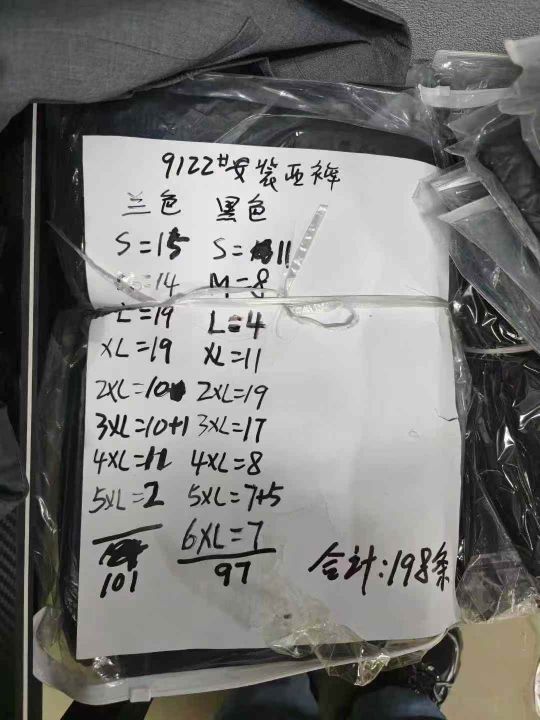 9122#安装西裤
兰色 黑色
S=15 S=11
M=14 M=8
L=19 L=4
XL=19 XL=11
2XL=10 2XL=19
3XL=10+1 3XL=17
4XL=12 4XL=8
5XL=2 5XL=7+5
6XL=7
101 97
合计:198条